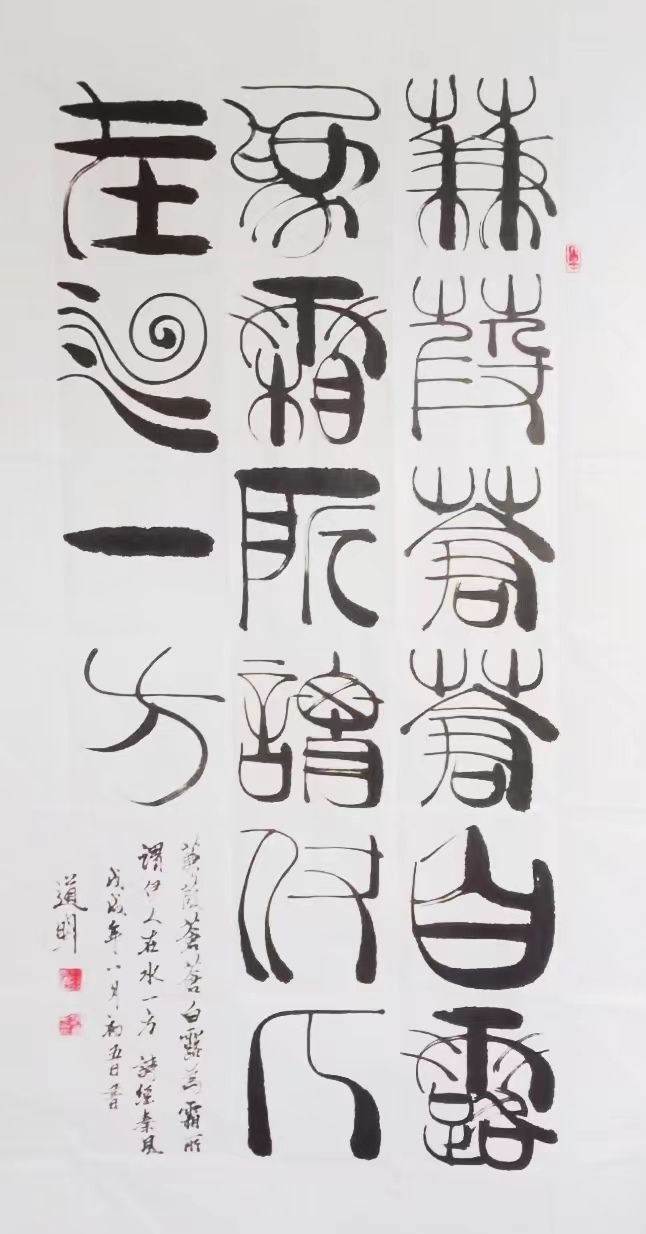 蒹葭蒼蒼白露
為霜所謂伊人
在水一方
蒹葭蒼蒼白露為霜所
謂伊人在水一方 詩經秦風
戊戌年八月初五日書
道明